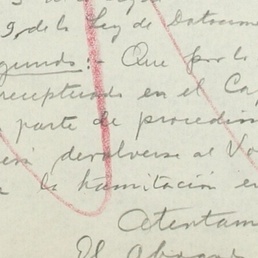 9, de la Ley de Dotacione
egundo:- Que por lo
receptuado en el Ca
a parte de procedim
erá devolverse al Vo
a la tramitación e
Atentam
El Aboga